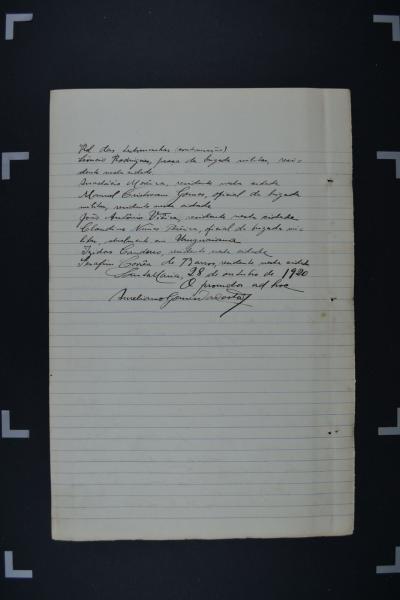 Rol das testemunhas (continuação)
Leoncio Rodrigues, praça da brigada militar, resi-
dente nesta cidade
Anastácio Moreira, residente nesta cidade
Manoel Christovam Gomes, oficial da brigada
militar, residente nesta cidade
João Antônio Vieira, residente nesta cidade
Claudino Nunes Pereira, oficial da brigada mi-
litar, atualmente em Uruguaiana
Izidoro Cordeiro, residente nesta cidade
Serafim Corrêa de Barros, residente nesta cidade
Santa Maria, 28 de outubro de 1920
O promotor ad hoc
Aureliano